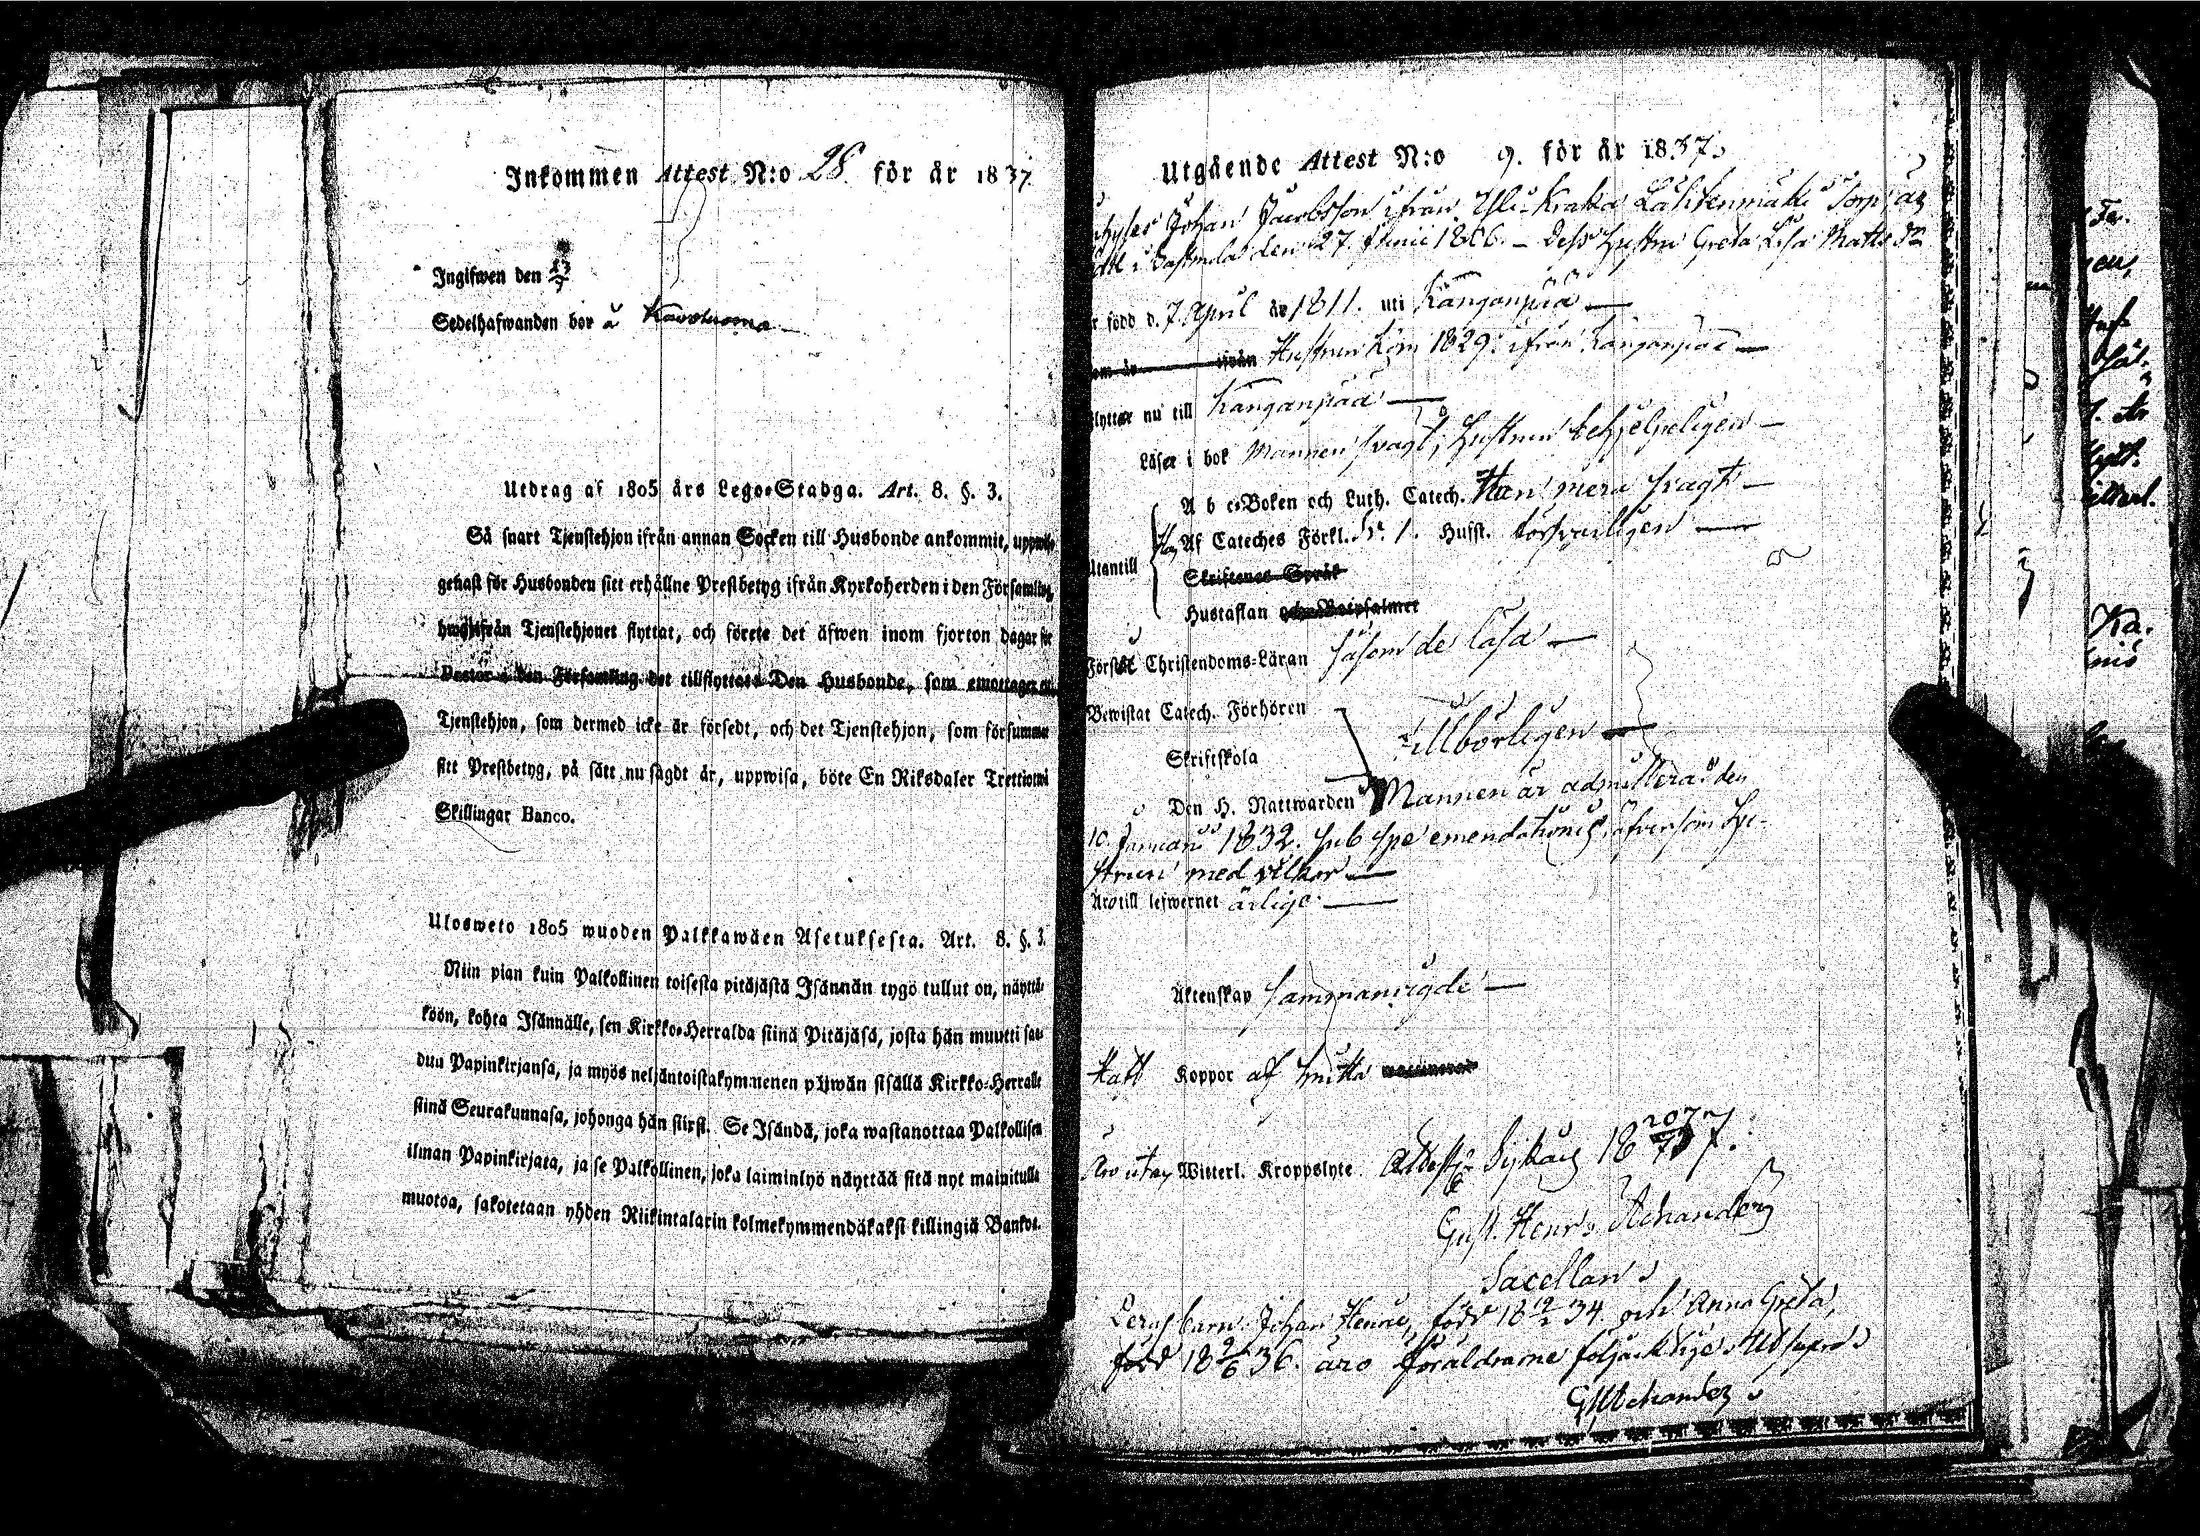 Inkommen Attest N:o 28. för år 1837.
Ingifwen den
Sedelhafwanden bor å
Utdrag af 1805 års Lego-Stadga. Art. 8. §. 3.
Så snart Tjenstehjon ifrån annan Socken till Husbonde ankommit, uppwise
genast för Husbonden sitt erhållne Prestbetyg ifrån Kyrkoherden i den Församling,
hwarifrån Tjenstehjonet flyttat, och förete det äfwen inom fjorton dagar för
Pastor i den Församling det tillflyttat. Den Husbonde, som emottager ett
Tjenstehjon, som dermed icke är försedt, och det Tjenstehjon, som försummar
sitt Prestbetyg, på sätt nu sagdt är, uppwisa, böte En Riksdaler Trettiotwå
Skillingar Banco.
Ulosweto 1805 wuoden Palkkawäen Asetuksesta. Art. 8. §. 3.
Niin pian kuin Palkollinen toisesta pitäjästä Isännän tygö tullut on, näyttä-
köön, kohta Isännälle, sen Kirkko-Herralda siinä Pitäjäsä, josta hän muutti saa-
dun Papinkirjansa, ja myös neljäntoistakymmenen päiwän sisällä Kirkko-Herralle
siinä Seurakunnasa, johonga hän siirst. Se Isändä, joka wastanottaa Palkollisen
ilman Papinkirjata, ja se Palkollinen, joka laiminlyö näyttää sitä nyt mainitulla
muotoa, sakotetaan yhden Riikintalarin kolmekymmendäkaksi killingiä Bankos.
Utgående Attest N:o 9. för år 1837.
Johan Jacobsson ifrån Yli-Kraka Lähtenmäki Torp, är
i den 27 Junii 1806. – Dess hustru Greta Lisa Matts dr
född d. 7 April år 1811. uti Kanganpää —
ifrån Hustrun kom 1829. ifrån Kanganpää —
flyttar nu till Kanganpää —
Läser i bok Mannen svagt, hustrun behjelpeligen —
Utantill
A b c-Boken och Luth. Catech. Han mera svagt —
Af Cateches Förkl. 1. Hufst. försvarligen —
Skriftenes Språk
Hustaflan och Botpsalmer
Förstå Christendoms-Läran såsom de läsa —
Bewistat Catech. Förhören
Skriftskola
Tillbörligen —
Den H. Nattwarden Mannen är admitterad den
10 Januarii 1832. sub spe emendationis, äfvensom hu-
strun med vilkor —
Äro till lefwernet ärlige —
Äktenskap sammanvigde —
Haft Koppor af smitta
Äro utan Witterl. Kroppslyte. Attest.
Gust. Henr. Achander
Sacellan.
Deras barn Johan Henric, född 18 12/2 34. och Anna Greta,
född 18 2/6 36. äro föräldrarne följacktige. Ut supra.
GHAchander.